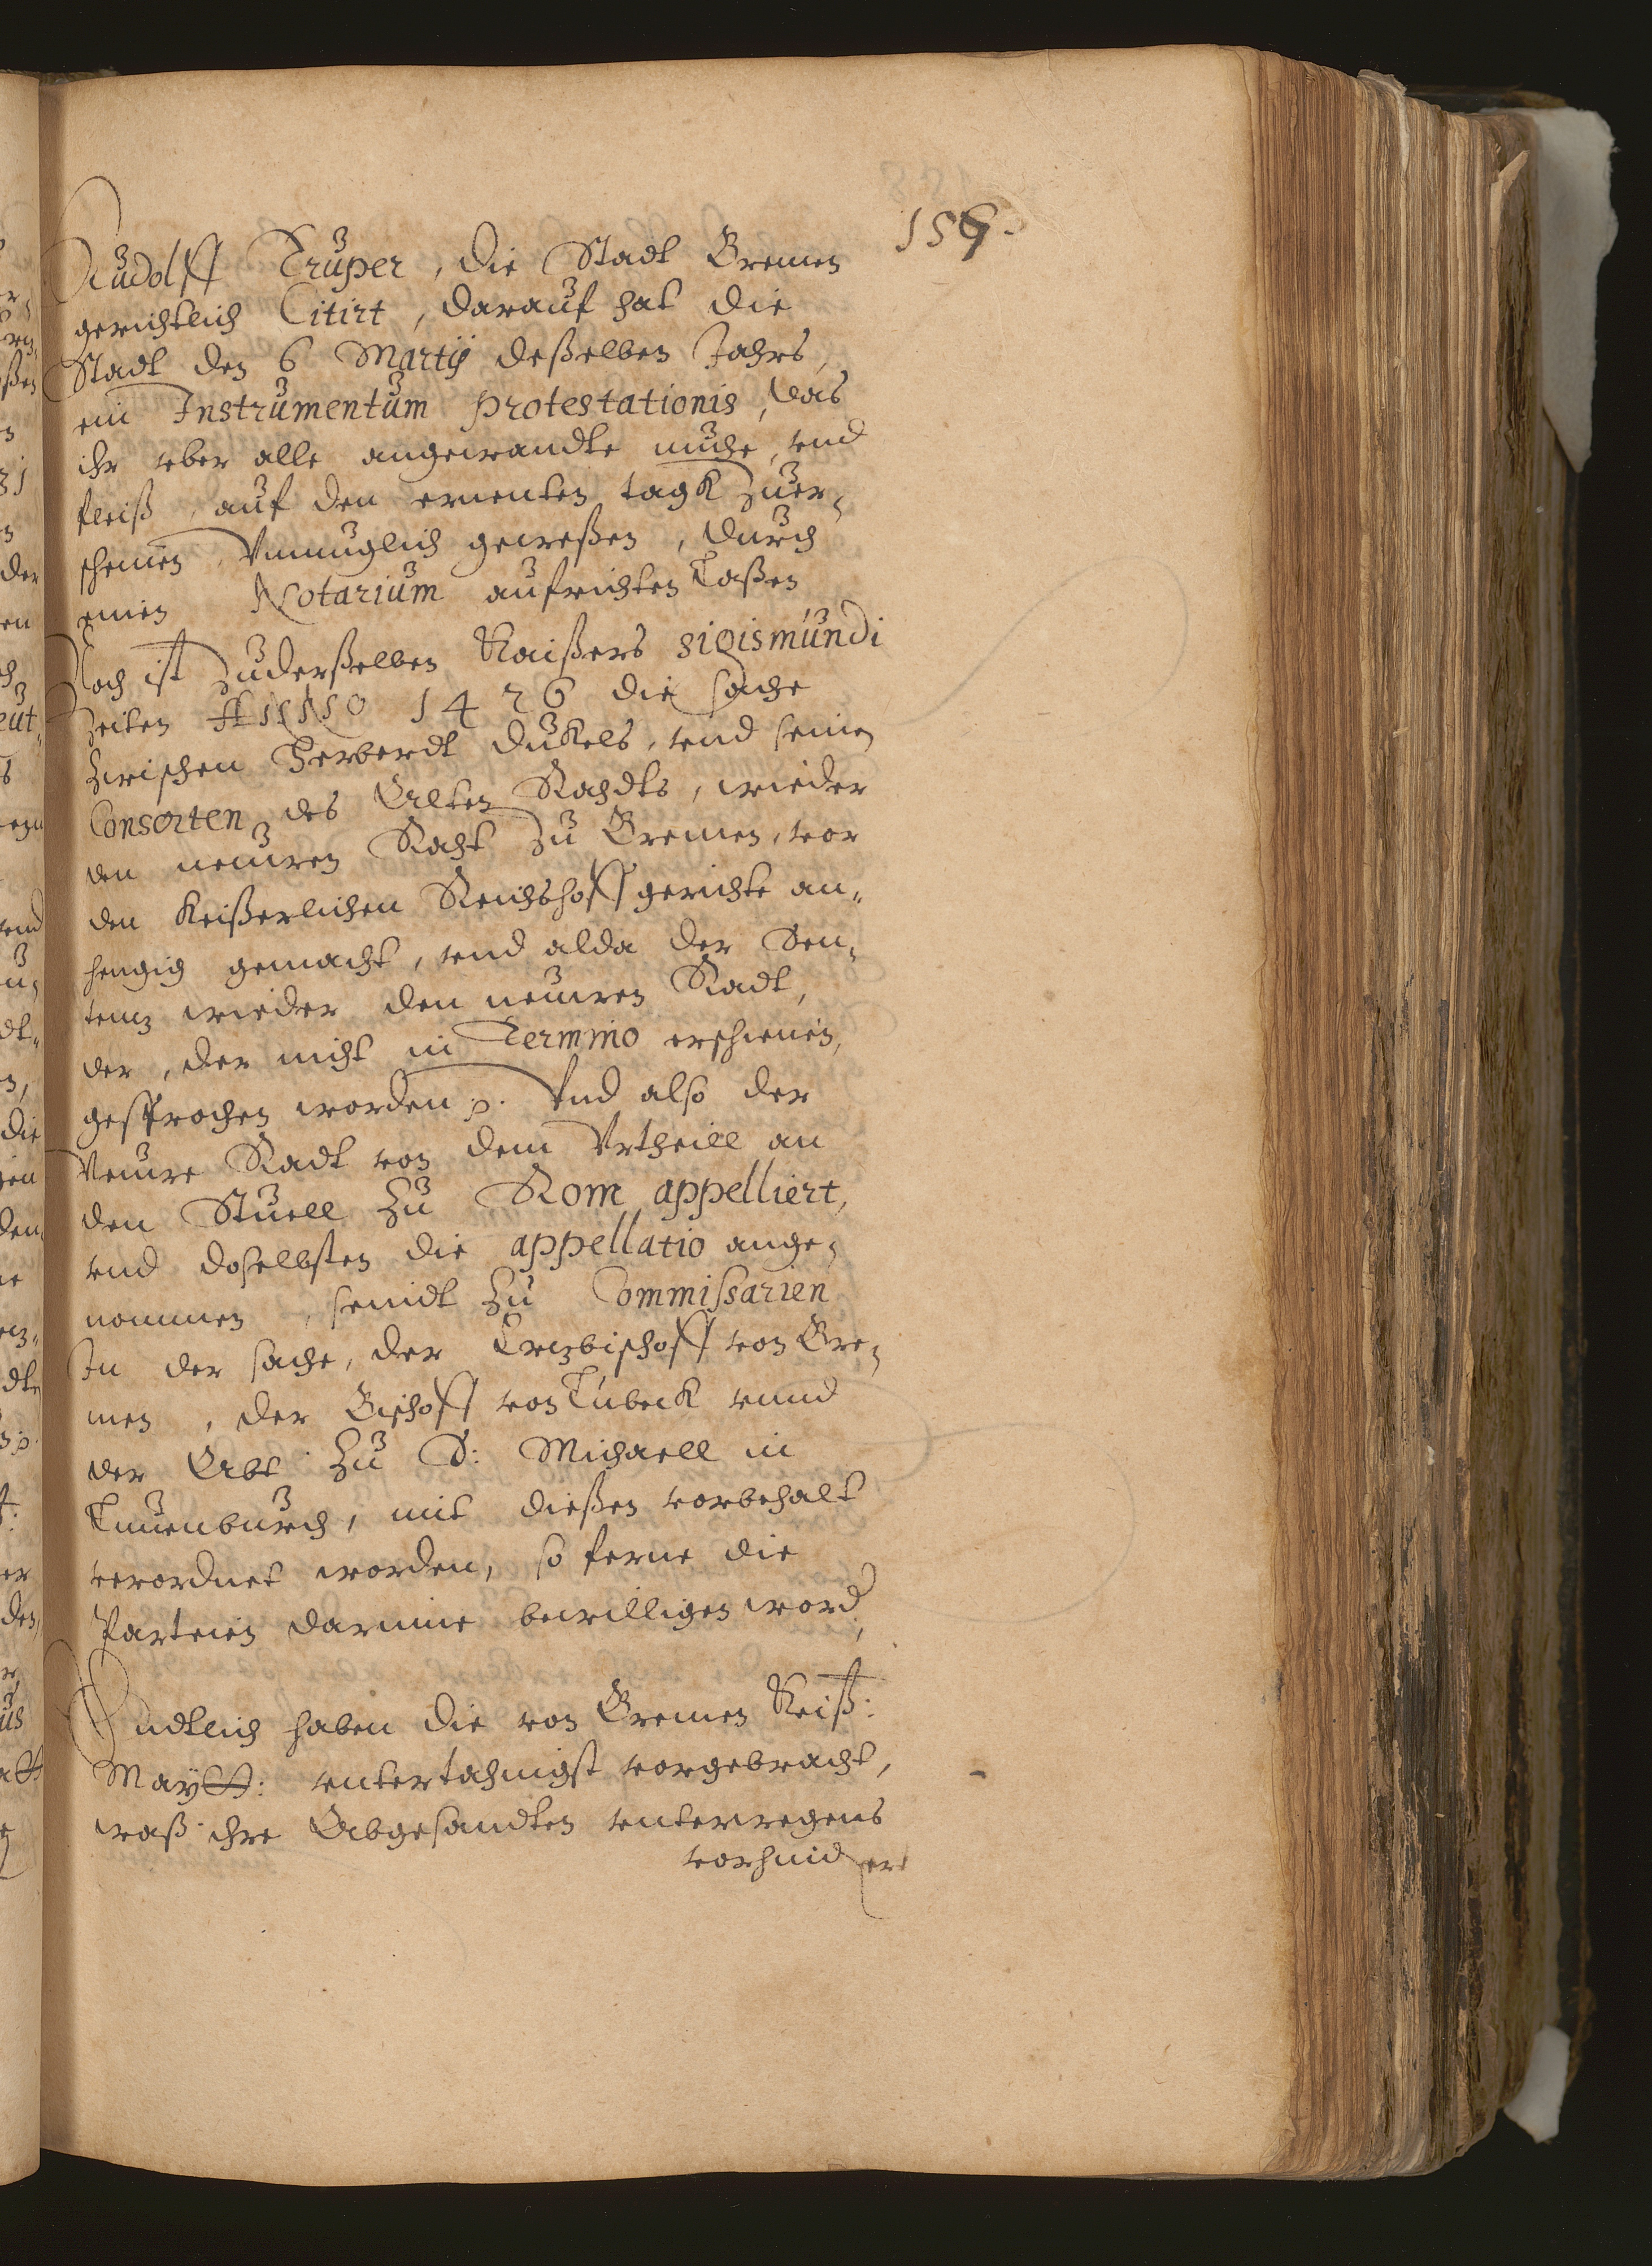 159.
Rudolff Truper, die Stadt Bremen
gerichtlich Citirt, darauf hat die
Stadt den 6 Martij deßelben Jahrs,
ein Instrumentum protestationis, das
ihr vber alle angewandte muhe, vnd
fleiß, auf den ernenten tagk zuer,
scheinen, Vnmuglich geweßen, durch
einen Notarium aufrichten Laßen
Noch ist zuderßelben Kaißers sigismundi
Zeiten Anno 1426 die sache
Zwischen Herberdt Dukels, vnd seinen
Consorten des Alten Rahdts, wieder
den neuwen Raht Zu Bremen, vor
den Keißerlichen Reichshoff gerichte an,,
hengig gemacht, vnd alda der Sen,
tentz wieder den neuwen Radt,
der, der nicht in Termino erschienen,
gesprochen worden p. Vnd also der
Neuwe Radt von dem Vrtheill an
den Stuell Zu Rom appelliert,
vnd doselbsten die appellatio ange,
nommen, seindt Zu Commissarien
In der sache, der Ertzbischoff von Bre,
men, der Bischoff von Lubeck vnnd
der Abt Zu S: Michaell in
Luneburch, mit dießen vorbehalt
verordnet worden, so ferne die
Parteien darinne bewilligen word,
Endtlich haben die von Bremen Keiß:
Maytt: vntertahnigst vorgebracht,
waß ihre Abgesandten vnterwegens
vorhinder